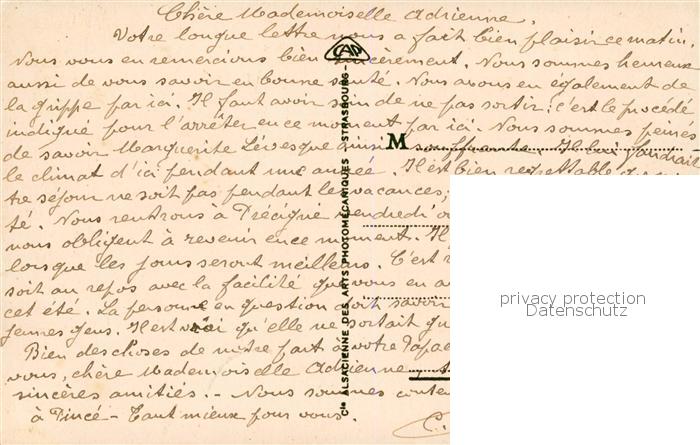 Chère Mademoiselle Adrienne,
Votre longue lettre nous a fait bien plaisir ce matin.
Nous vous en remercions bien sincèrement. Nous sommes heureux
aussi de vous savoir en bonne santé. Nous avons eu également de
la grippe par ici. Il faut avoir soin de ne pas sortir : c'est le procédé
indiqué pour l'arrêter en ce moment par ici. Nous sommes peinés
de savoir Marguerite Lévesque ainsi souffrante. Il lui faudrait
le climat d'ici pendant une année. Il est bien regrettable
tre séjour ne soit pas pendant les vacances,
té. Nous rentrons à Précigné vendredi
nous obligent à revenir en ce moment. Il
lorsque les jours seront meilleurs. C'est
soit au repos avec la facilité que vous en
cet été. La personne en question doit savoir
jeunes gens. Il est vrai qu'elle ne sortait
Bien des choses de notre part à votre Papa
vous, chère Mademoiselle Adrienne,
sincères amitiés. - Nous sommes
à Pincé - Tant mieux pour vous.
C.
CAP
M
Cie ALSACIENNE DES ARTS PHOTOMÉCANIQUES - STRASBOURG -
privacy protection
Datenschutz